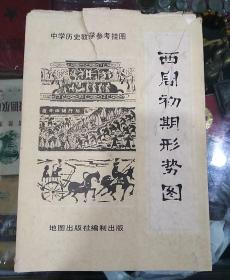 中学历史教学参考挂图
西周初期形势图
地图出版社编制出版